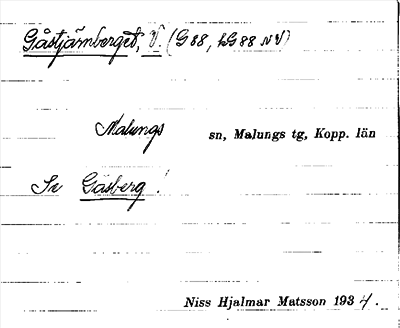 Gåstjärnberget, V. (G 88, LG 88 NV)
Malungs sn, Malungs tg, Kopp. län
Se Gåsberg!
Niss Hjalmar Matsson 1934.